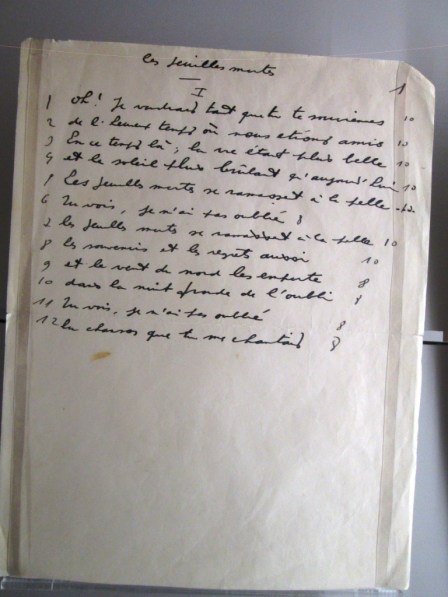 les feuilles mortes
I 1
1 oh! Je voudrais tant que tu te souviennes 10
2 de l'heureux temps où nous étions amis 10
3 En ce temps là; la vie était plus belle 10
4 et le soleil plus brûlant qu'aujourd'hui 10
5 Les feuilles mortes se ramassent à la pelle
6 Tu vois, je n'ai pas oublié 8
7 les feuilles mortes se ramassent à la pelle 10
8 les souvenirs et les regrets aussi 10
9 et le vent du nord les emporte 8
10 dans la nuit froide de l'oubli 8
11 Tu vois, je n'ai pas oublié 8
12 La chanson que tu me chantais 8